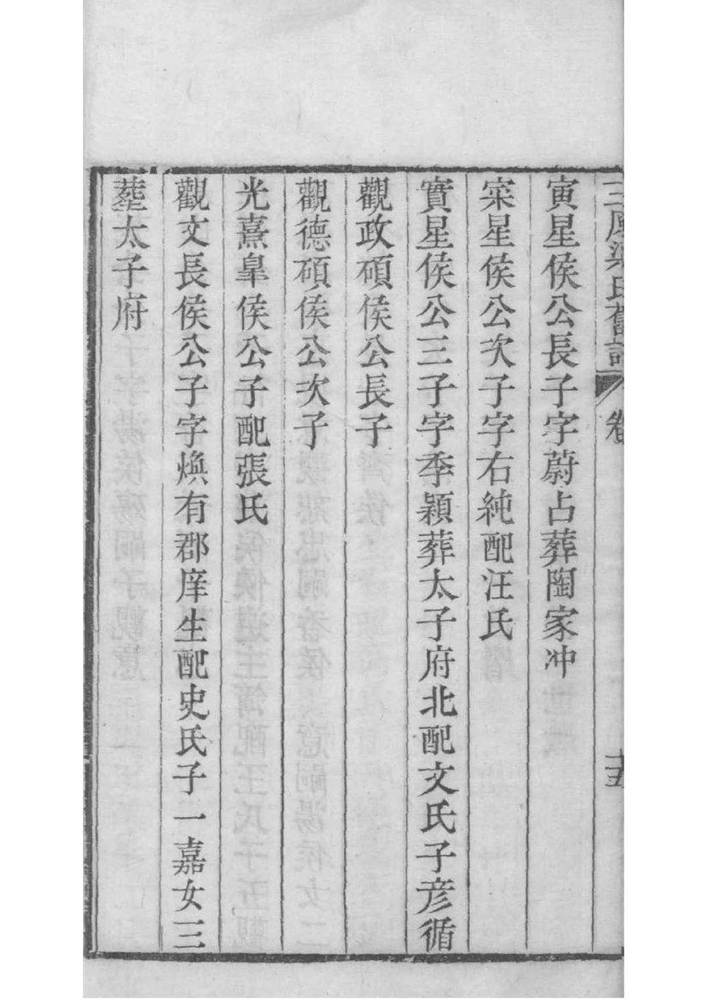 三 梁氏舊譜 卷 十五
寅星侯公長子字蔚占葬陶家冲
寀星侯公次子字右純配汪氏
實星侯公三子字季穎葬太子府北配文氏子彦循
觀政碩侯公長子
觀德碩侯公次子
光熹臯侯公子配張氏
觀文長侯公子字煥有郡庠生配史氏子一嘉女三
葬太子府